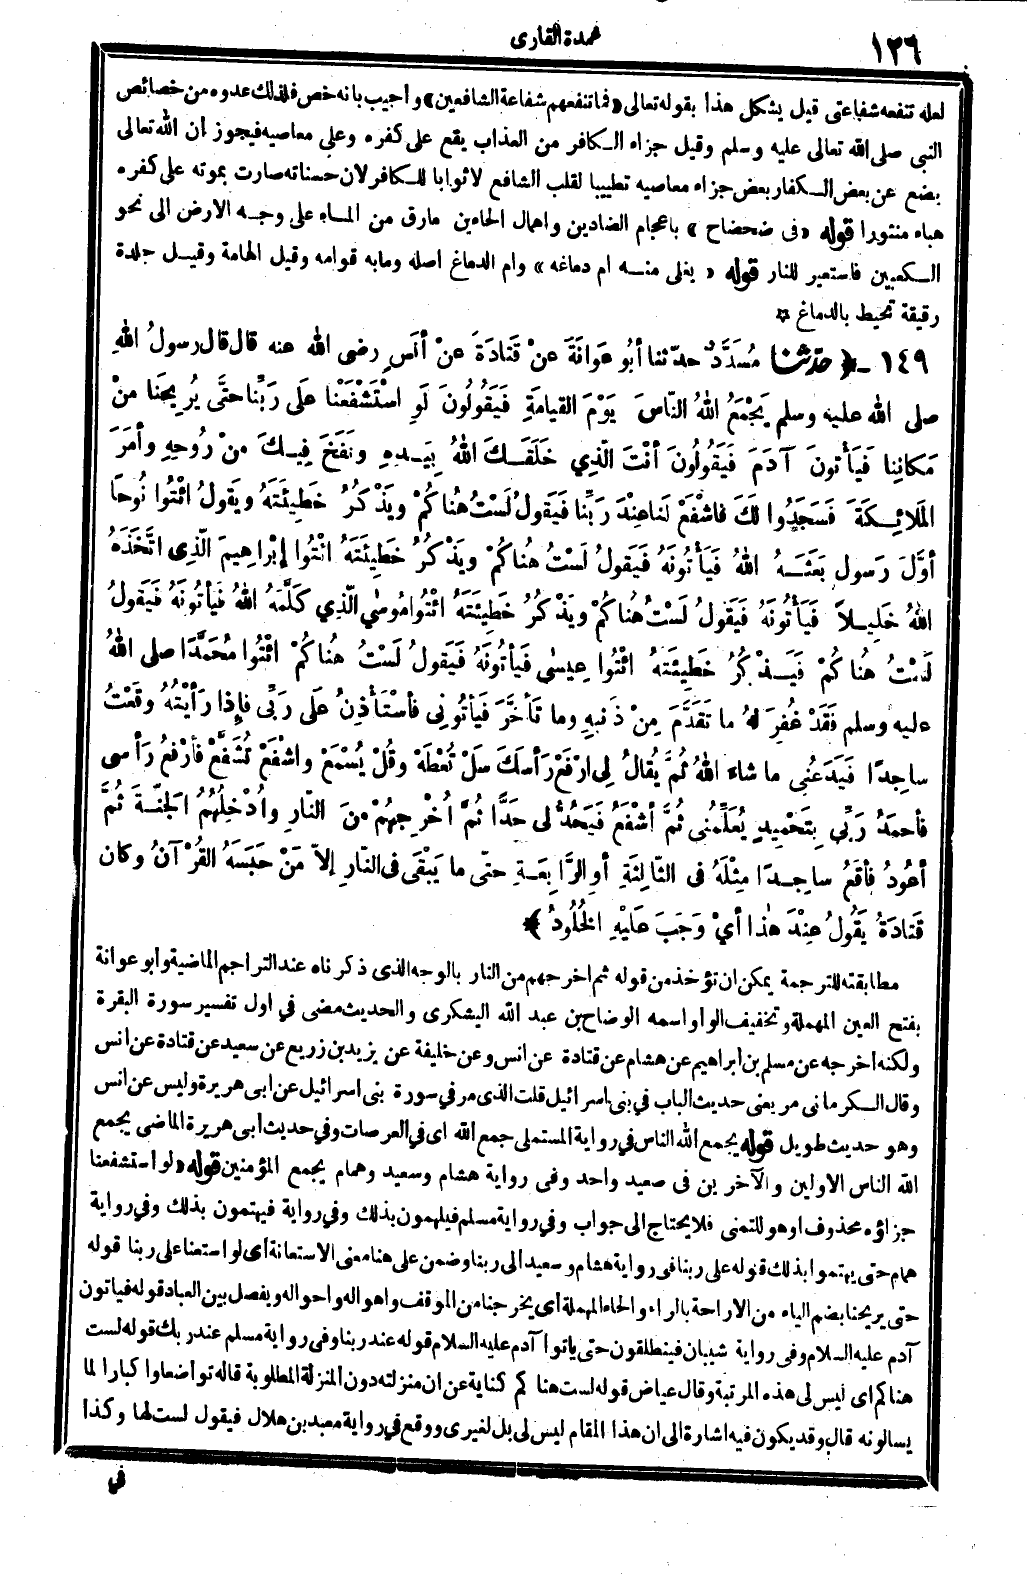 ١٢٦
عمدة القارى
لعله تنفعه شفاعتى قيل يشكل هذا بقوله تعالى «فما تنفعهم شفاعة الشافعين» وأجيب بانه خص فلذلك عدوه من خصائص
النبى صلى الله تعالى عليه وسلم وقيل جزاء الكافر من العذاب يقع على كفره وعلى معاصيه فيجوز ان الله تعالى
يضع عن بعض الكفار بعض جزاء معاصيه تطييبا لقلب الشافع لا ثوابا للكافر لان حسناته صارت بموته على كفره
هباء منثورا قوله «فى ضحضاح» باعجام الضادين واهمال الحاءين مارق من الماء على وجه الارض الى نحو
الكعبين فاستعير للنار قوله «يغلى منه ام دماغه» وام الدماغ اصله ومابه قوامه وقيل الهامة وقيل جلدة
رقيقة تحيط بالدماغ ☆
١٤٩ - ﴿حدّثنا مُسَدَّدٌ حدّثنا أبُو عَوَانَةَ عنْ قَتَادَةَ عنْ أنَسٍ رضى الله عنه قال قال رسولُ اللهِ
صلى الله عليه وسلم يَجْمَعُ اللهُ النّاسَ يَوْمَ القيامَةِ فَيَقُولُونَ لَوِ اسْتَشْفَعْنَا عَلَى رَبِّنا حتَّى يُرِيحَنا مِنْ
مَكانِنِا فَيَأتُونَ آدَمَ فَيَقُولُونَ أنْتَ الّذِي خَلَقَكَ اللهُ بِيَدِهِ ونَفَخَ فِيكَ مِنْ رُوحِهِ وأمَرَ
المَلائِكَةَ فَسَجَدُوا لَكَ فاشْفَعْ لَنا عِنْدَ رَبِّنا فَيَقُولُ لَسْتُ هُناكُمْ ويَذْكُرُ خَطِيئَتَهُ ويَقولُ ائْتُوا نُوحًا
أوَّلَ رَسولٍ بَعَثَهُ اللهُ فَيَأْتُونَهُ فَيَقُولُ لَسْتُ هُناكُمْ ويَذْكُرُ خَطِيئَتَهُ ائْتُوا إبْراهِيمَ الّذِى اتَّخَذَهُ
اللهُ خَلِيلاً فَيَأْتُونَهُ فَيَقُولُ لَسْتُ هُناكُمْ ويَذْكُرُ خَطِيئَتَهُ ائْتُوا مُوسٰى الّذِي كَلَّمَهُ اللهُ فَيَأتُونَهُ فَيَقُولُ
لَسْتُ هُناكُمْ فَيَذْكُرُ خَطِيئَتَهُ ائْتُوا عِيسٰى فَيأتُونَهُ فَيَقولُ لَسْتُ هُناكُمْ ائْتُوا مُحَمَّدًا صلى اللهُ
عليه وسلم فَقَدْ غُفِرَ لهُ ما تَقَدَّمَ مِنْ ذَنْبِهِ وما تَأخَّرَ فَيَأتُونِى فأسْتَأْذِنُ عَلَى رَبِّى فإذا رَأيْتُهُ وقَعْتُ
ساجِدًا فَيَدَعُنِى ما شاءَ اللهُ ثُمَّ يُقالُ لِى ارْفَعْ رَأسَكَ سَلْ تُعْطَهْ وقُلْ يُسْمَعْ واشْفَعْ تُشَفَّعْ فأرْفَعُ رَأسى
فأحمَدُ رَبِّي بِتَحْمِيدٍ يُعَلِّمُنى ثُمَّ أشْفَعُ فَيَحُدُّ لى حَدًّا ثُمَّ أُخْرِجهُمْ مِنَ النّارِ وأُدْخِلُهُمُ الجَنّةَ ثُمَّ
أعُودُ فأقَعُ ساجِدًا مِثْلَهُ فى الثّالِثَةِ أوِ الرَّابِعَةِ حتّى ما يَبْقَى فى النّارِ إلاّ مَنْ حَبَسَهُ القُرْآنُ وكان
قَتَادَةُ يَقُولُ عِنْدَ هٰذا أيْ وَجَبَ عَلَيْهِ الخُلُودُ﴾
مطابقته للترجمة يمكن ان تؤخذ من قوله ثم اخرجهم من النار بالوجه الذى ذكرناه عند التراجم الماضية وابو عوانة
بفتح العين المهملة وتخفيف الواو اسمه الوضاح بن عبد الله اليشكرى والحديث مضى في اول تفسير سورة البقرة
ولكنه اخرجه عن مسلم بن ابراهيم عن هشام عن قتادة عن انس وعن خليفة عن يزيد بن زريع عن سعيد عن قتادة عن انس
وقال الكرمانى مر يعنى حديث الباب في بنى اسرائيل قلت الذى مر في سورة بنى اسرائيل عن ابى هريرة وليس عن انس
وهو حديث طويل قوله يجمع الله الناس في رواية المستملى جمع الله اى في العرصات وفي حديث ابى هريرة الماضى يجمع
الله الناس الاولين والآخرين فى صعيد واحد وفى رواية هشام وسعيد وهمام يجمع المؤمنين قوله «لو استشفعنا
جزاؤه محذوف او هو للتمنى فلا يحتاج الى جواب وفي رواية مسلم فيلهمون بذلك وفي رواية فيهتمون بذلك وفي رواية
همام حتى يهتموا بذلك قوله على ربنا فى رواية هشام وسعيد الى ربنا وضمن على هنا معنى الاستعانة اى لو استعنا على ربنا قوله
حتى يريحنا بضم الياء من الاراحة بالراء والحاء المهملة اى يخرجنا من الموقف واهواله واحواله ويفصل بين العباد قوله فياتون
آدم عليه السلام وفى رواية شيبان فينطلقون حتى ياتوا آدم عليه السلام قوله عند ربنا وفى رواية مسلم عند ربك قوله لست
هناكم اى ليس لى هذه المرتبة وقال عياض قوله لست هنا كم كناية عن ان منزلته دون المنزلة المطلوبة قاله تواضعا واكبارا لما
يسالونه قال وقد يكون فيه اشارة الى ان هذا المقام ليس لى بل لغيرى ووقع في رواية معبد بن هلال فيقول لست لها وكذا
في